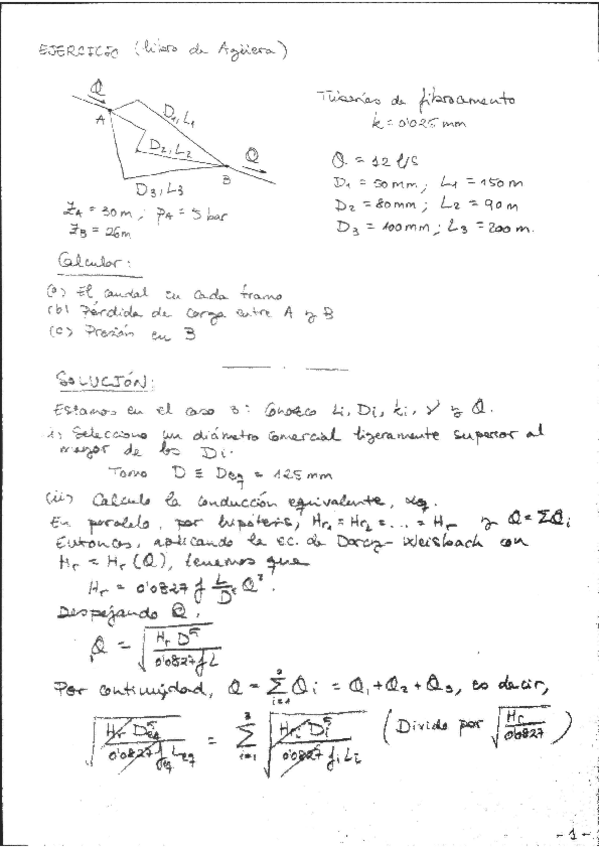 EJERCICIO (libro de Agüera)
Q
A
D1, L1
D2, L2
B
Q
D3, L3
ZA = 30 m ; PA = 5 bar
ZB = 26 m
Tuberías de fibrocemento
k = 0'025 mm
Q = 12 l/s
D1 = 50 mm ; L1 = 150 m
D2 = 80 mm ; L2 = 90 m
D3 = 100 mm ; L3 = 200 m.
Calcular :
(a) El caudal en cada tramo
(b) Pérdida de carga entre A y B
(c) Presión en B
SOLUCIÓN:
Estamos en el caso 3 : Conozco Li, Di, ki, γ y Q.
i) Selecciono un diámetro comercial ligeramente superior al
mayor de los Di.
Tomo D ≡ Deq = 125 mm
(ii) Calculo la conducción equivalente,
En paralelo, por hipótesis, Hr1 = Hr2 = ... = Hr y Q = ΣQi
Entonces, aplicando la ec. de Darcy-Weisbach con
Hr = Hr (Q), tenemos que
Hr = 0'0827 f L/D⁵ Q².
Despejando Q,
Q = √(Hr D⁵ / 0'0827 f L)
Por continuidad, Q = Σ(i=1, 3) Qi = Q1 + Q2 + Q3, es decir,
√(Hr Deq⁵ / 0'0827 feq Leq) = Σ(i=1, 3) √(Hri Di⁵ / 0'0827 fi Li) (Divido por √(Hr / 0'0827))
- 1 -